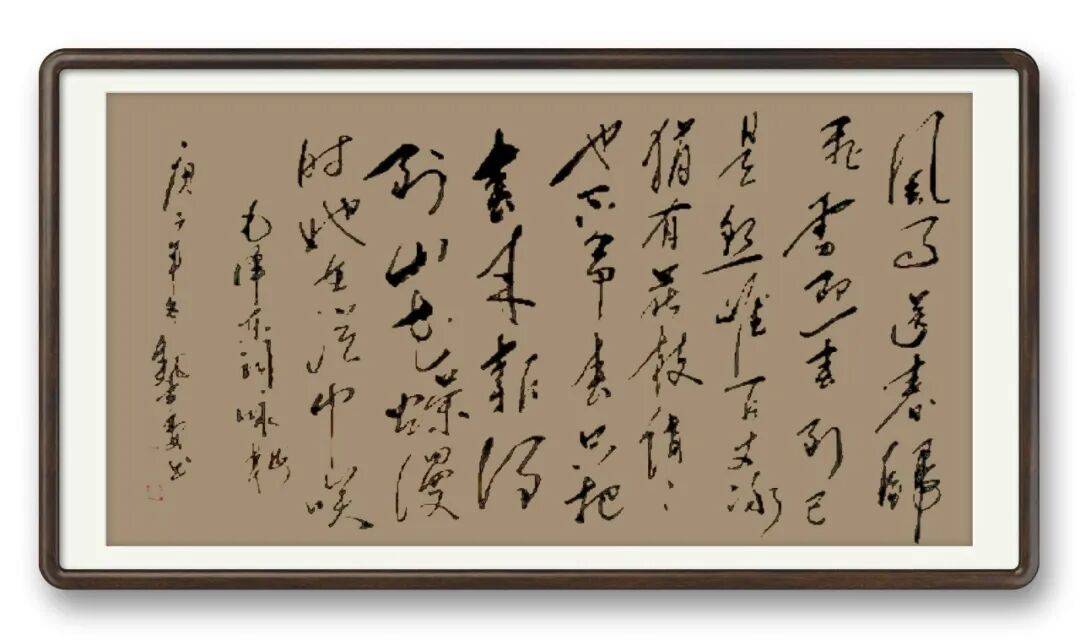 風雨送春歸
飛雪迎春到已
是懸崖百丈冰
猶有花枝俏〻
也不爭春只把
春來報待
到山花爛漫
时她在叢中咲
毛澤東詞咏梅
庚子年冬 书